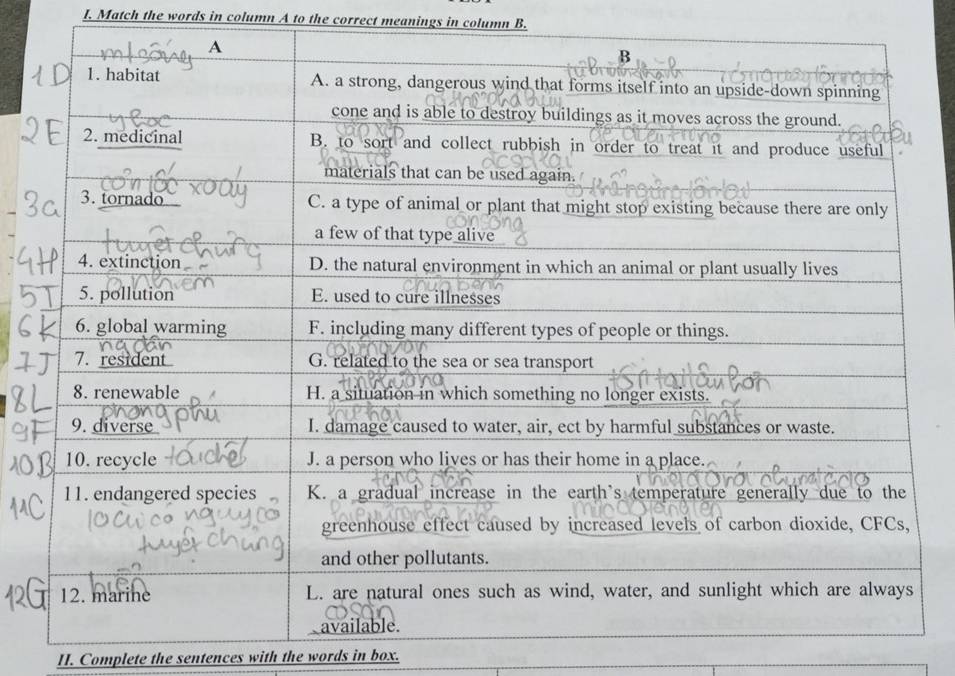 I. Match the words in column A to the correct meanings in column B.
A
B
1D 1. habitat
A. a strong, dangerous wind that forms itself into an upside-down spinning
cone and is able to destroy buildings as it moves across the ground.
2E 2. medicinal
B. to sort and collect rubbish in order to treat it and produce useful
materials that can be used again.
3a 3. tornado
C. a type of animal or plant that might stop existing because there are only
còn sống
a few of that type alive
tuyệt chủng
4H 4. extinction
D. the natural environment in which an animal or plant usually lives
ô nhiễm
chữa bệnh
5I 5. pollution
E. used to cure illnesses
6K 6. global warming
F. including many different types of people or things.
7J 7. resident
G. related to the sea or sea transport
8L 8. renewable
H. a situation in which something no longer exists.
phong phú
chất
9F 9. diverse
I. damage caused to water, air, ect by harmful substances or waste.
10B 10. recycle tái chế
J. a person who lives or has their home in a place.
11C 11. endangered species
K. a gradual increase in the earth's temperature generally due to the
loài có nguy cơ
greenhouse effect caused by increased levels of carbon dioxide, CFCs,
tuyệt chủng
and other pollutants.
biển
12G 12. marine
L. are natural ones such as wind, water, and sunlight which are always
có sẵn
available.
II. Complete the sentences with the words in box.